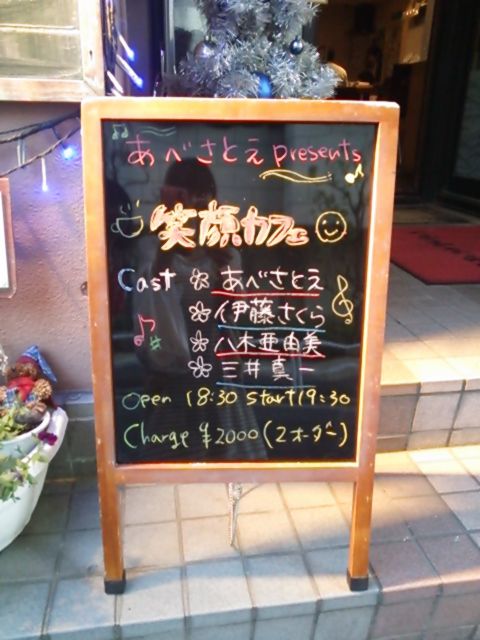 あべさとえ presents
笑顔カフェ
Cast あべさとえ
伊藤さくら
八木亜由美
三井真一
Open 18:30 Start 19:30
Charge ¥2000 (2オーダー)